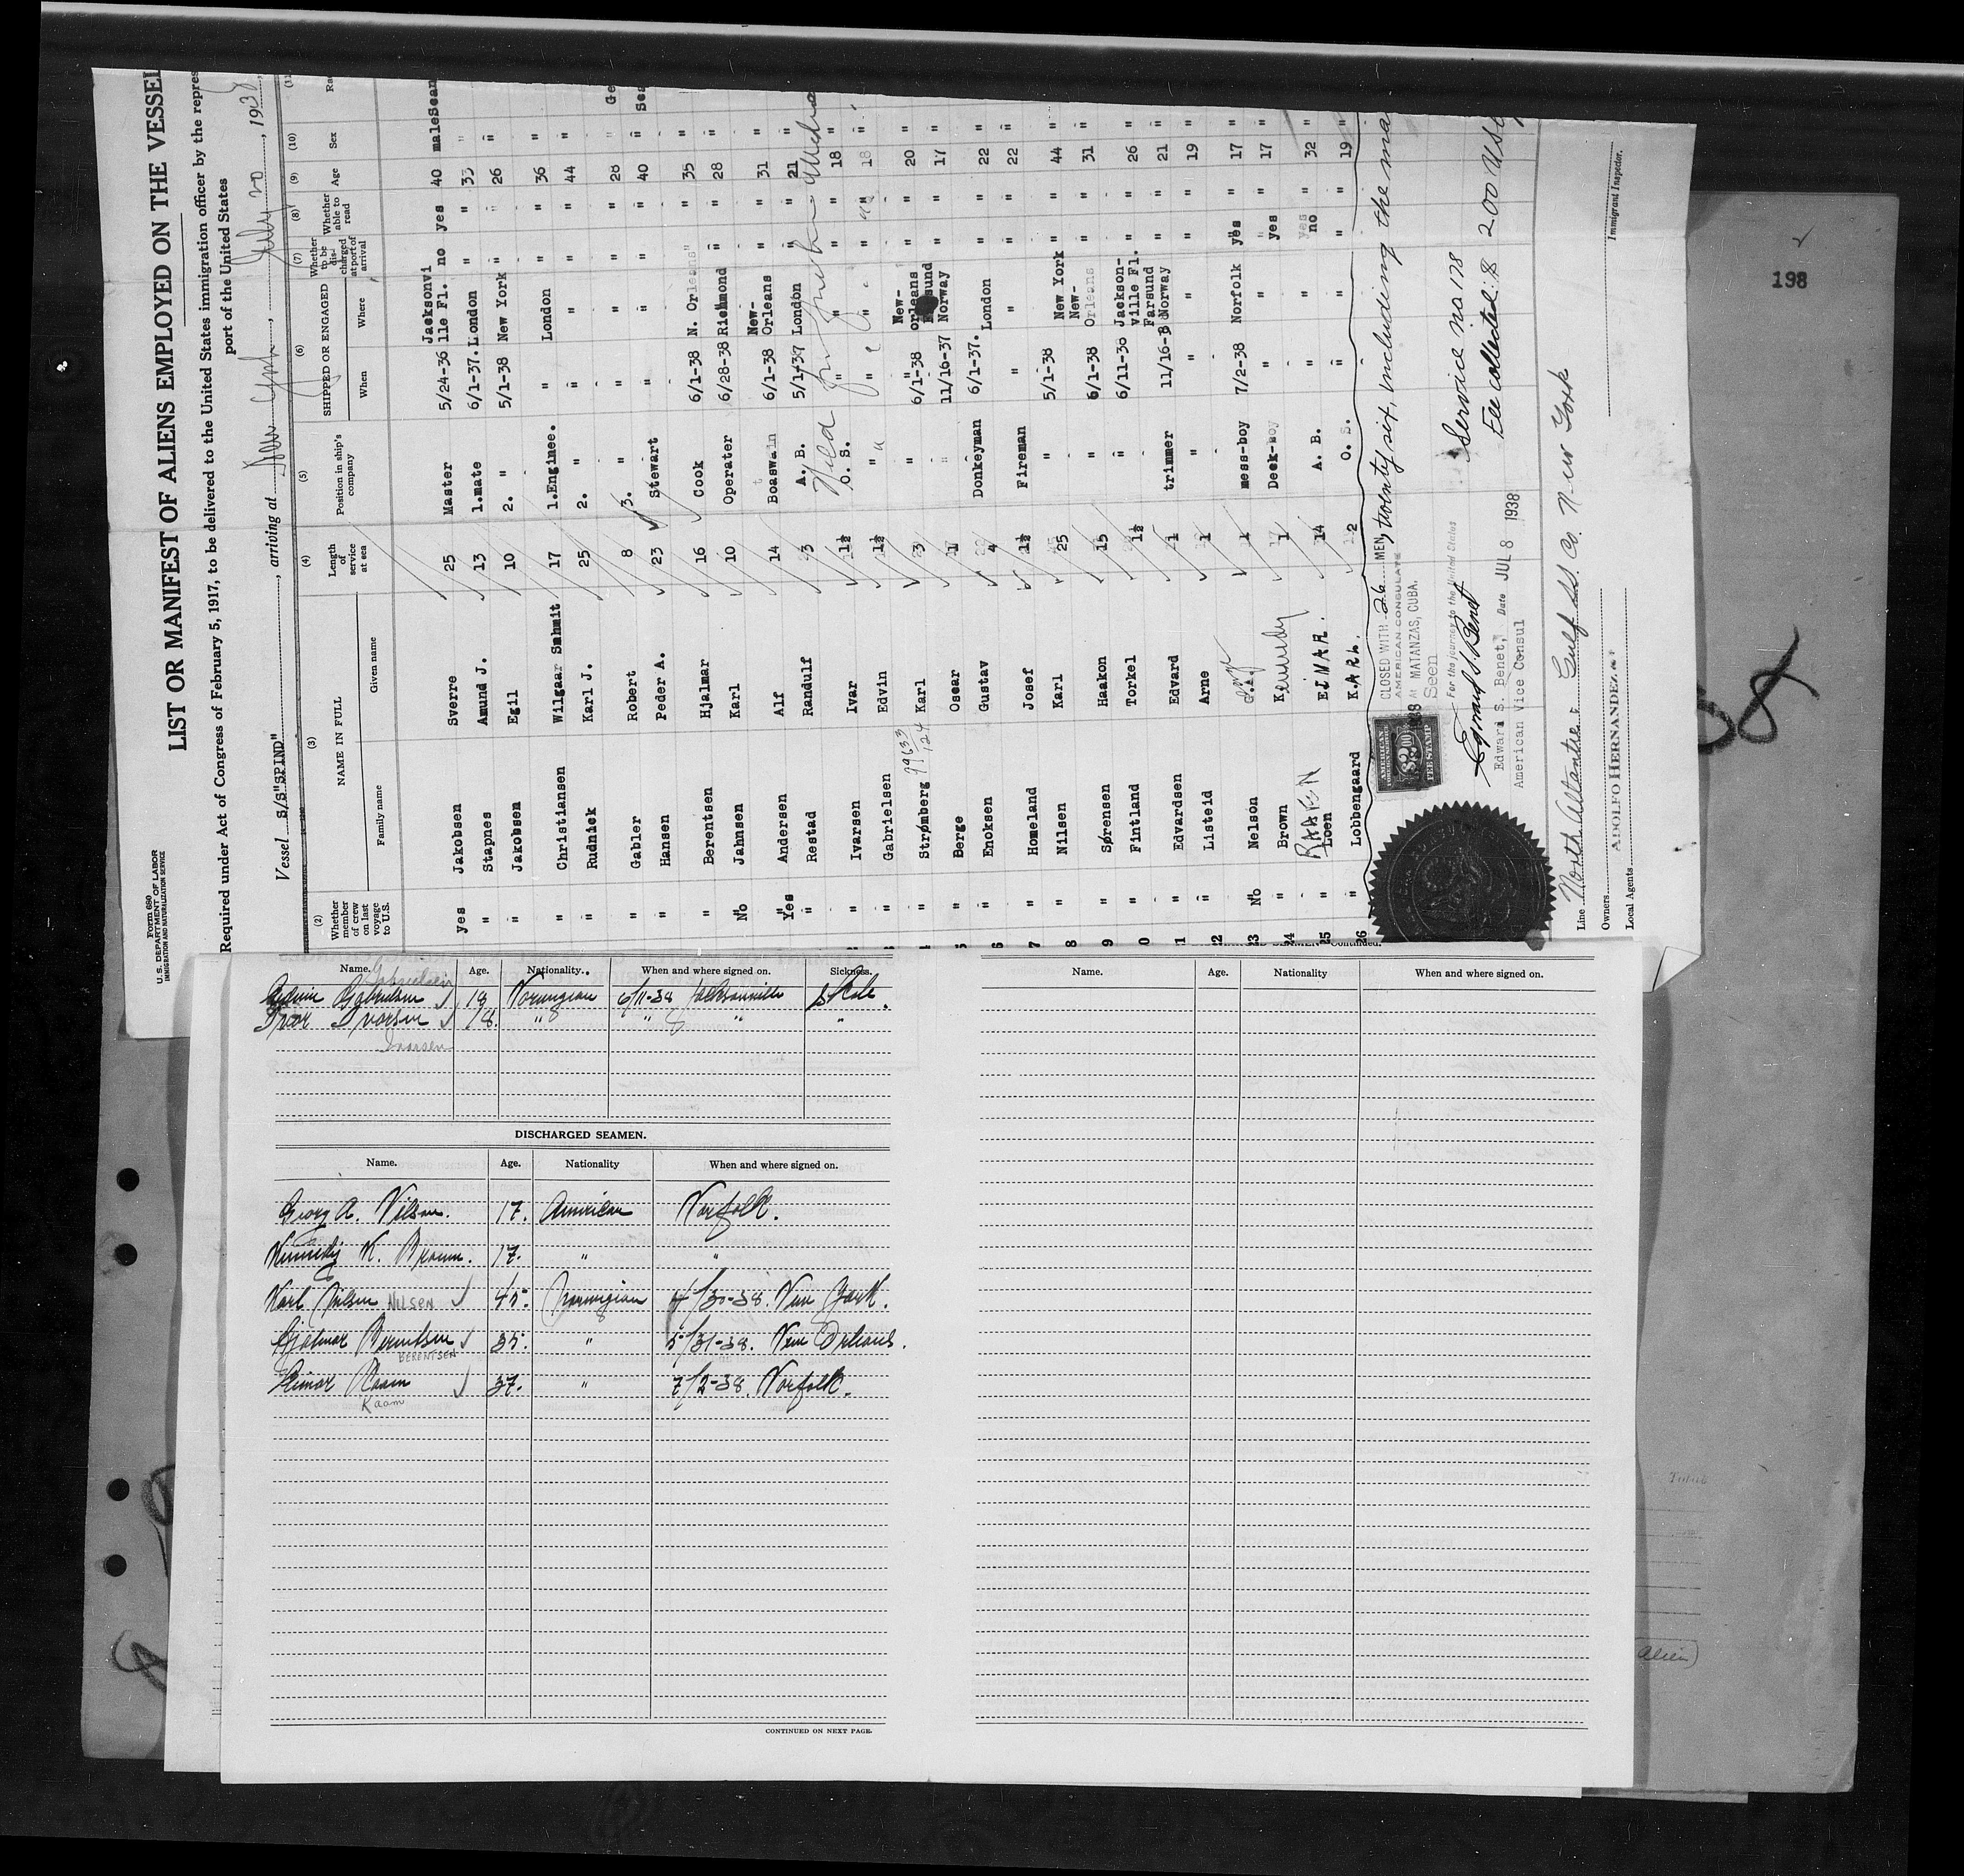 Form 680
U. S. DEPARTMENT OF LABOR
IMMIGRATION AND NATURALIZATION SERVICE
LIST OR MANIFEST OF ALIENS EMPLOYED ON THE VESSEL
Required under Act of Congress of February 5, 1917, to be delivered to the United States immigration officer by the repres
port of the United States
Vessel S/S"SPIND", arriving at New York, July 20, 1938
(2) (3) (4) (5) (6) (7) (8) (9) (10) (11
Whether member of crew on last voyage to U.S. NAME IN FULL Family name Given name Length of service at sea Position in ship's company SHIPPED OR ENGAGED When Where Whether to be discharged at port of arrival Whether able to read Age Sex Ra
yes Jakobsen Sverre 25 Master 5/24-36 Jacksonvi lle Fl. no yes 40 male Scan
" Stapnes Amund J. 13 1.mate 6/1-37. London " " 35 "
" Jakobsen Egil 10 2. " 5/1-38 New York " " 26 "
" Christiansen Wilgaar Smhmit 17 1.Enginee. " London " " 36 "
" Rudnick Karl J. 25 2. " " " " " 44 "
" Gabler Robert 8 3. " " " " " 28 " Ge
" Hansen Peder A. 23 Stewart " " " " 40 " Sca
" Berentsen Hjalmar 16 Cook 6/1-38 N. Orleans " " 35 "
No Jahnsen Karl 10 Operater 6/28-38 Richmond " " 28 "
" Andersen Alf 14 Boaswain 6/1-38 New-Orleans " " 31 "
Yes " Restad Randulf 3 A. B. 5/1-37 London " " 21
" Ivarsen Ivar 1½ O. S. " " " " 18 "
" Gabrielsen Edvin 1½ " " " 18 "
" Strømberg 99633/124 Karl 3 " 6/1-38 New-orleans " " 20 "
" Berge Oscar 1 " 11/16-37 Norway " " 17 "
" Enoksen Gustav 4 Donkeyman 6/1-37. London " " 22 "
" Homeland Josef 1½ Fireman " " " " 22 "
" Nilsen Karl 25 " 5/1-38 New York " " 44 "
" Sørensen Haakon 15 " 6/1-38 New-Orleans " " 31 "
" Fintland Torkel 1½ " 6/11-38 Jackson-ville Fl. " " 26 "
" Edvardsen Edvard 1 trimmer 11/16-3 Farsund Norway " " 21 "
" Listeid Arne 1 " " " " " 19 "
No Nelson 1 mess-boy 7/2-38 Norfolk yes " 17 "
" Brown Kennedy 1 Deck-boy " " yes " 17 "
" Loen RAAKEN EINAR. 14 A. B. " " no " 32 "
" Lobbengaard KARL. 2 O. S. " " " " 19 "
CLOSED WITH 26 MEN, twenty six, including the ma
AMERICAN CONSULATE
At MATANZAS, CUBA.
Seen
For the journey to the United States
Edward S. Benet
Edward S. Benet, Date JUL 8 1938
American Vice Consul
AMERICAN FOREIGN SERVICE $2.00 FEE STAMP
Service no 178
Fee collected: $ 2.00 US
Line North Atlantic & Gulf SS. Co. New York
Owners
ADOLFO HERNANDEZ
Local Agents
Immigrant Inspector.
198
Continued.
Name. Age. Nationality. When and where signed on. Sickness.
Gabrielsen
Edvin Gabrielsen 18 Norwegian 6/11-38 Jacksonville
Ivar Ivarsen 18. " " " "
Ivarsen
DISCHARGED SEAMEN.
Name. Age. Nationality When and where signed on.
Georg A. Nilson. 17. American Norfolk.
Kennedy K. Brown. 17. " "
Karl Nilsen NILSEN 45. Norwegian 4/30-38. New York.
Hjalmar Berentsen 35. " 5/31-38. New Orleans.
BERENTSEN
Einar Raam 37. " 7/2-38. Norfolk.
Raam
CONTINUED ON NEXT PAGE.
Name. Age. Nationality When and where signed on.
Alien)